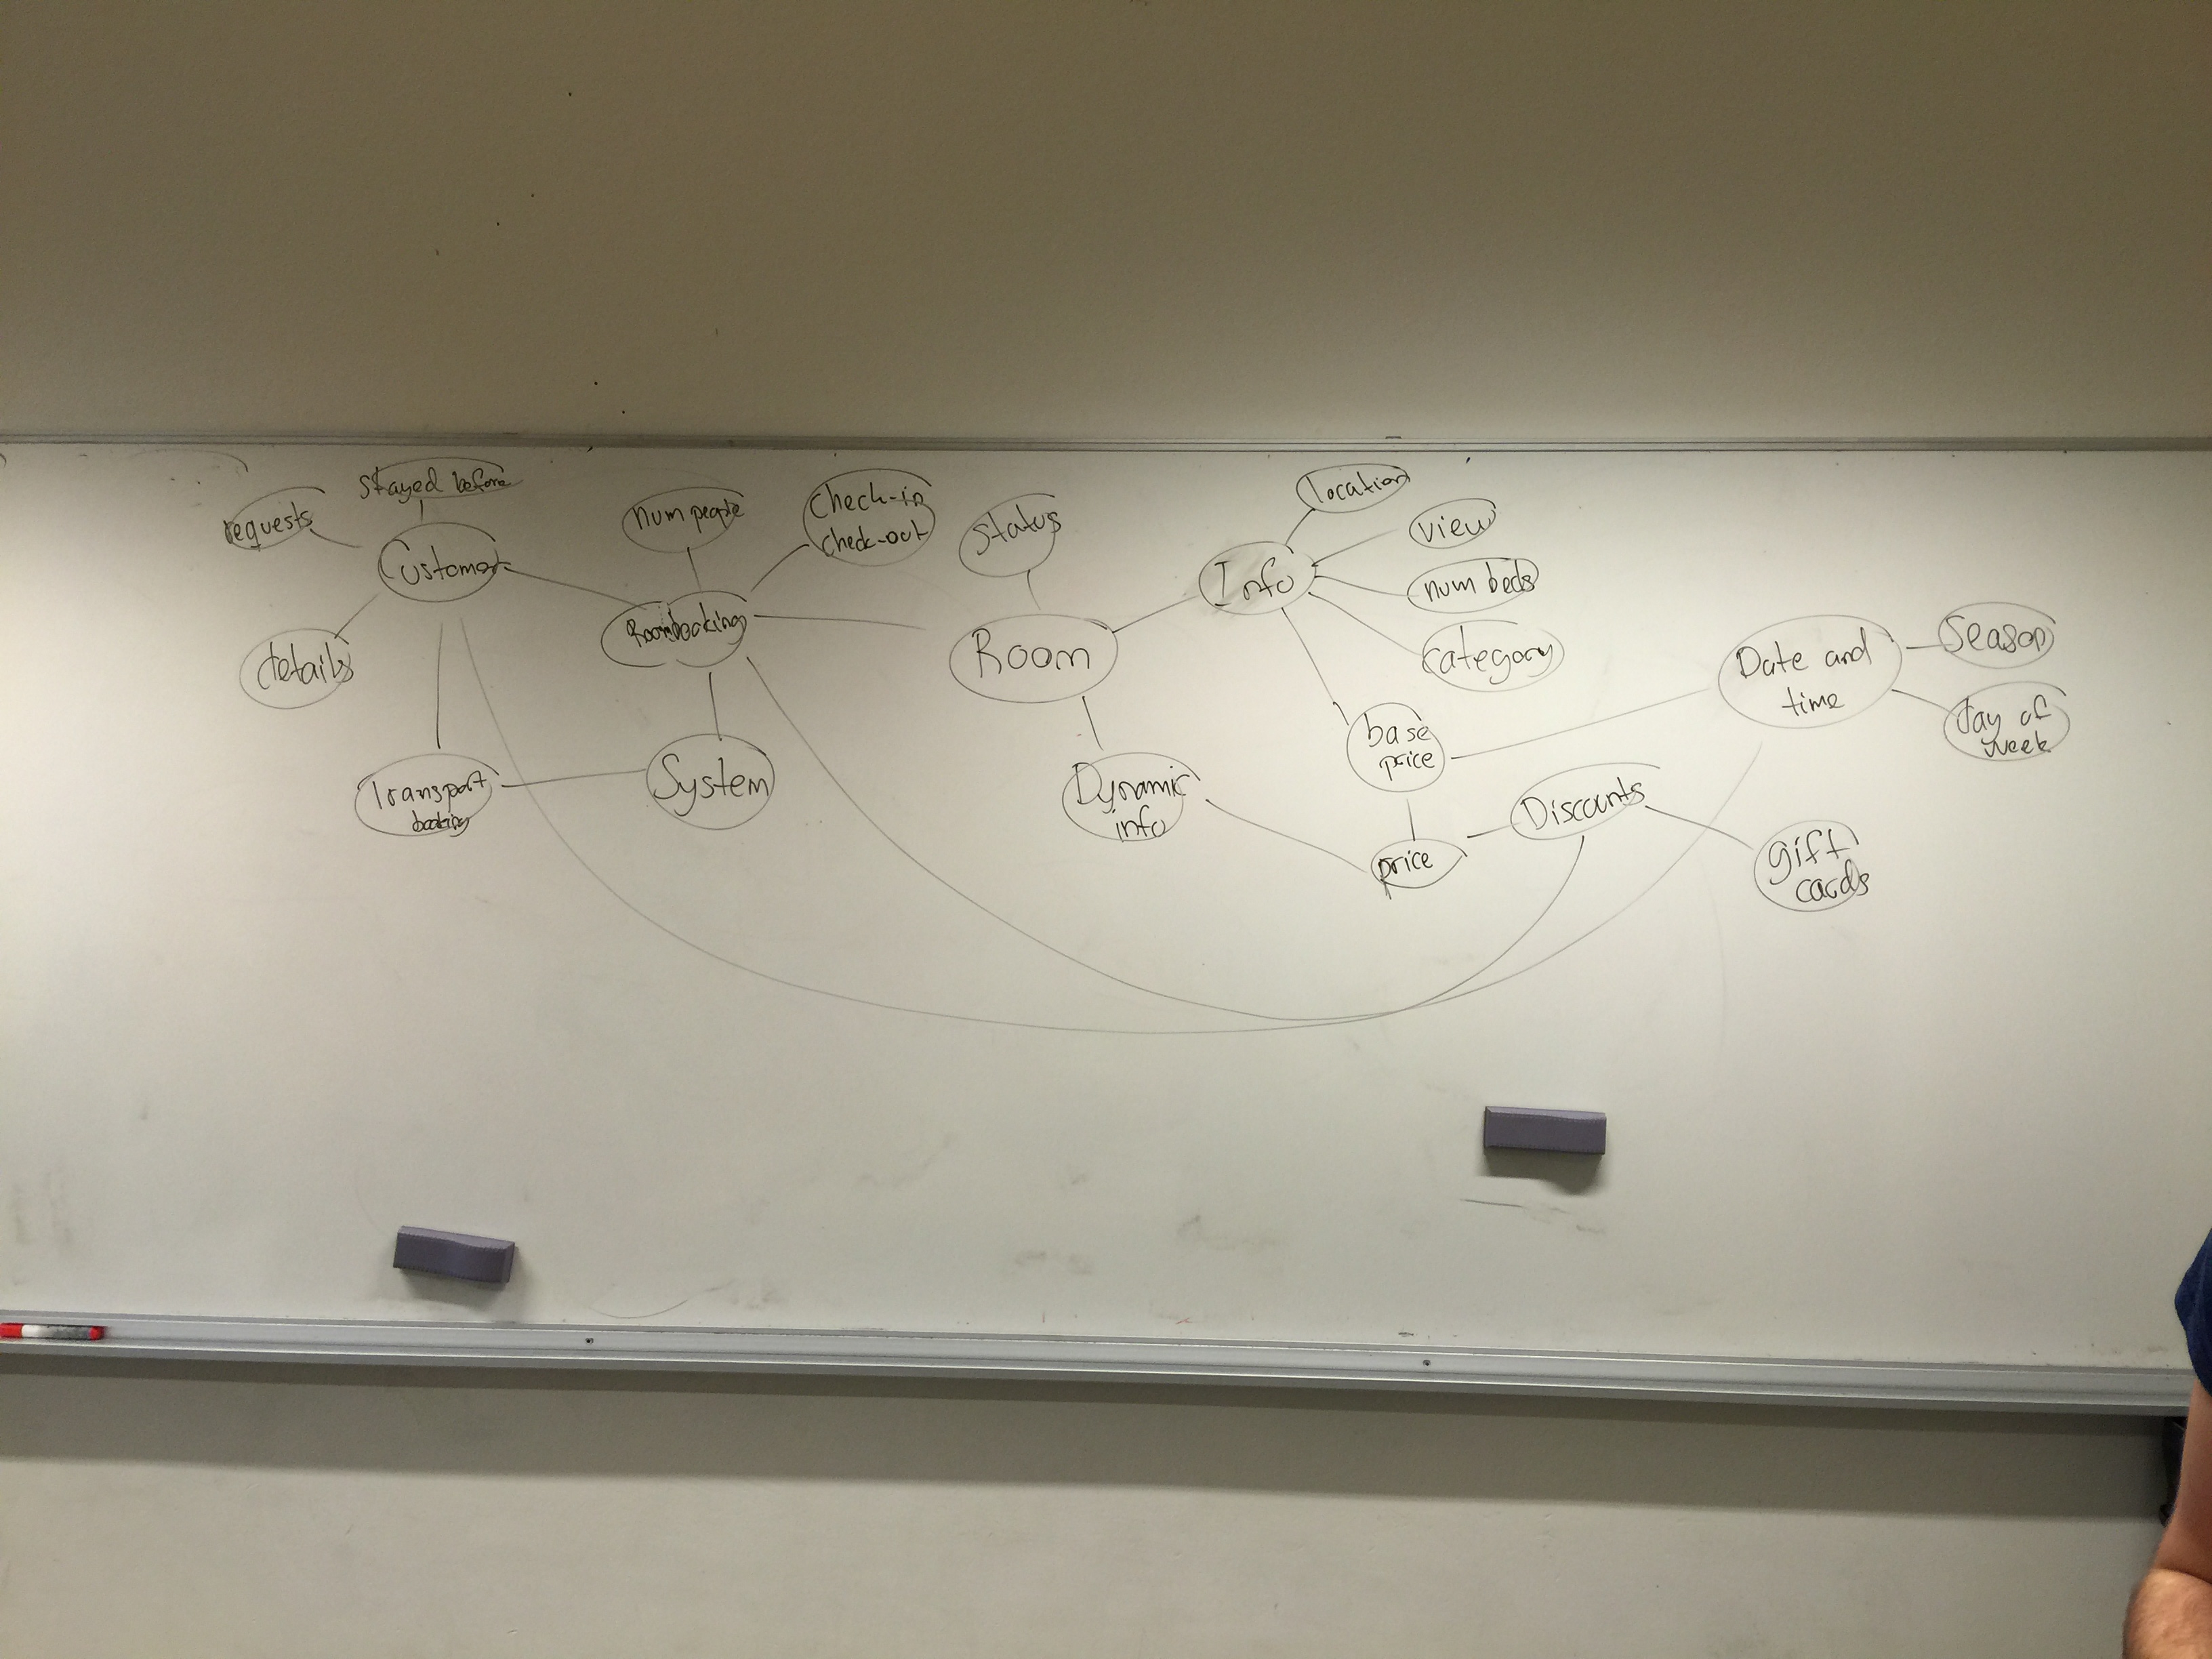 requests
stayed before
Customer
details
Transport
booking
num people
check-in
check-out
Roombooking
System
status
Room
Dynamic
info
Info
location
view
num beds
category
base
price
price
Discounts
gift
cards
Date and
time
season
day of
week